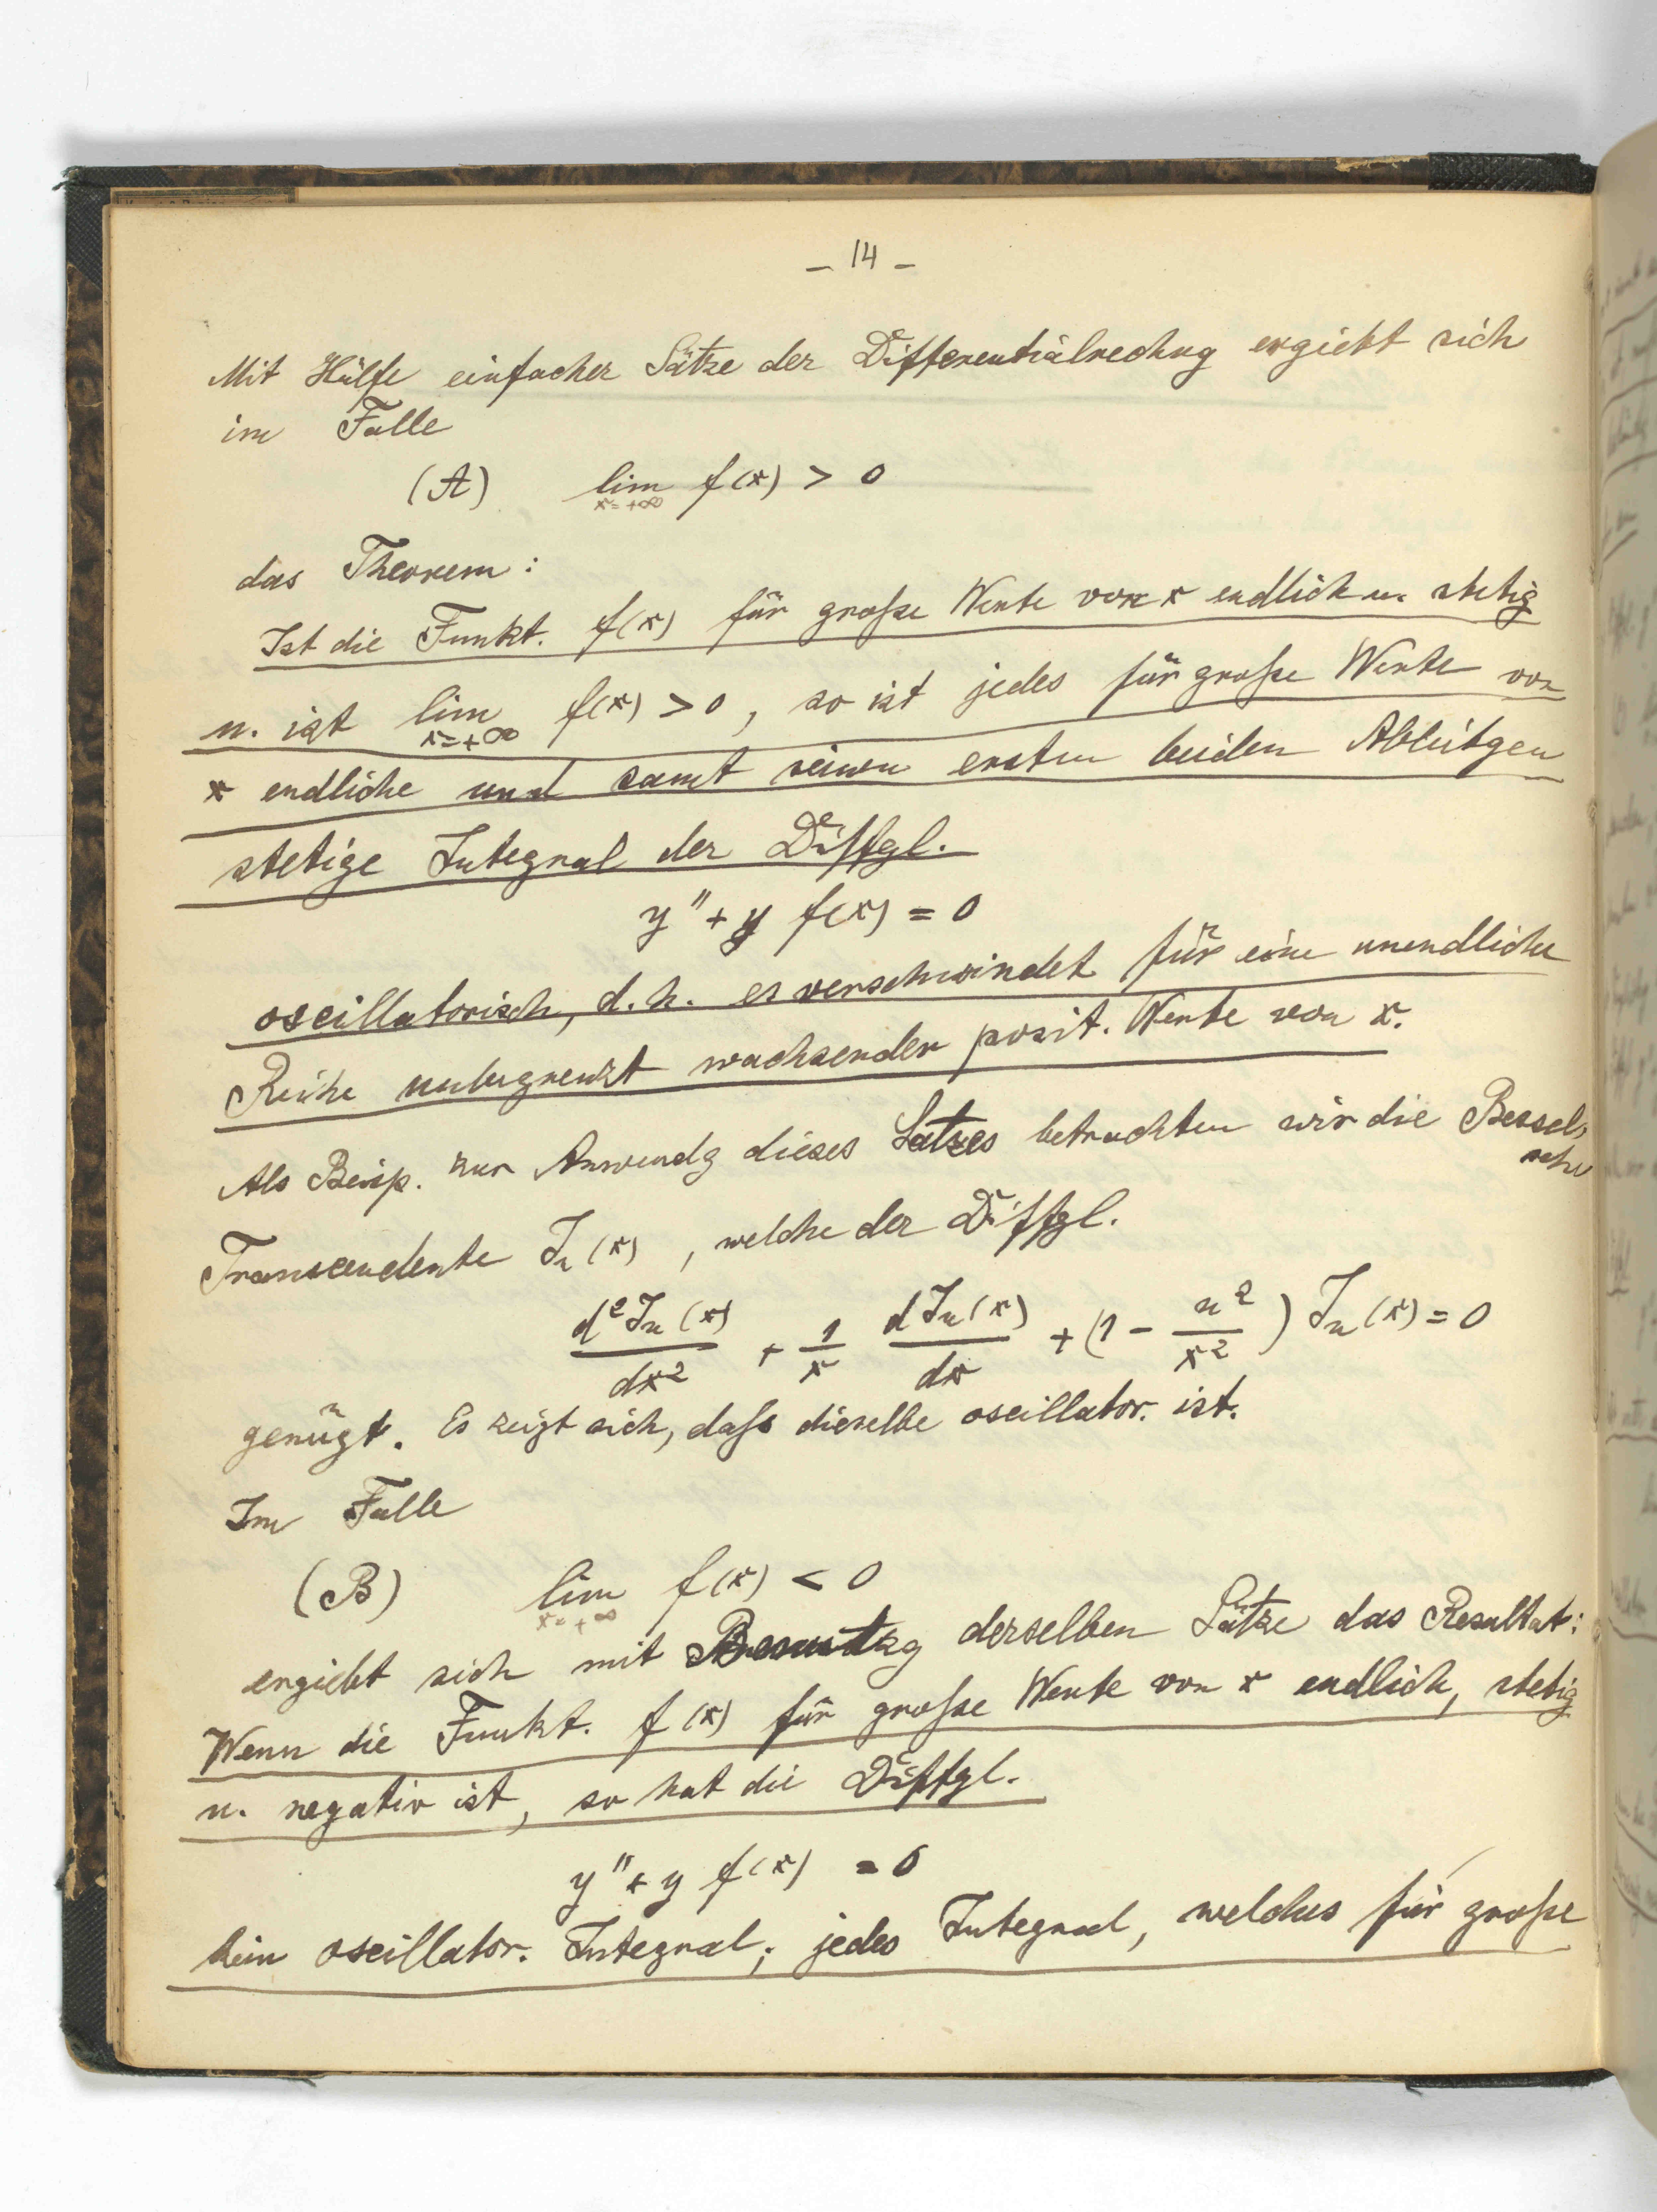 – 14 –
Mit Hülfe einfacher Sätze der Differentialrechng ergiebt sich
im Falle
(A) lim f(x) > 0
x=+∞
das Theorem:
Ist die Funkt. f(x) für große Werte von x endlich u. stetig
u. ist lim f(x) > 0, so ist jedes für große Werte von
x=+∞
x endliche und samt seinen ersten beiden Ableitgen
stetige Integral der Diffgl.
y″ + y f(x) = 0
oscillatorisch, d.h. es verschwindet für eine unendliche
Reihe unbegrenzt wachsender posit. Werte von x.
Als Beisp. zur Anwendg dieses Satzes betrachten wir die Bessel-
sche
Transcendente Jn(x), welche der Diffgl.
d²Jn(x)/dx² + 1/x dJn(x)/dx + (1 – n²/x²) Jn(x) = 0
genügt. Es zeigt sich, daß dieselbe oscillator. ist.
Im Falle
(B) lim f(x) < 0
x=+∞
ergiebt sich mit Benutzg derselben Sätze das Resultat:
Wenn die Funkt. f(x) für große Werte von x endlich, stetig
u. negativ ist, so hat die Diffgl.
y″ + y f(x) = 0
kein oscillator. Integral; jedes Integral, welches für große